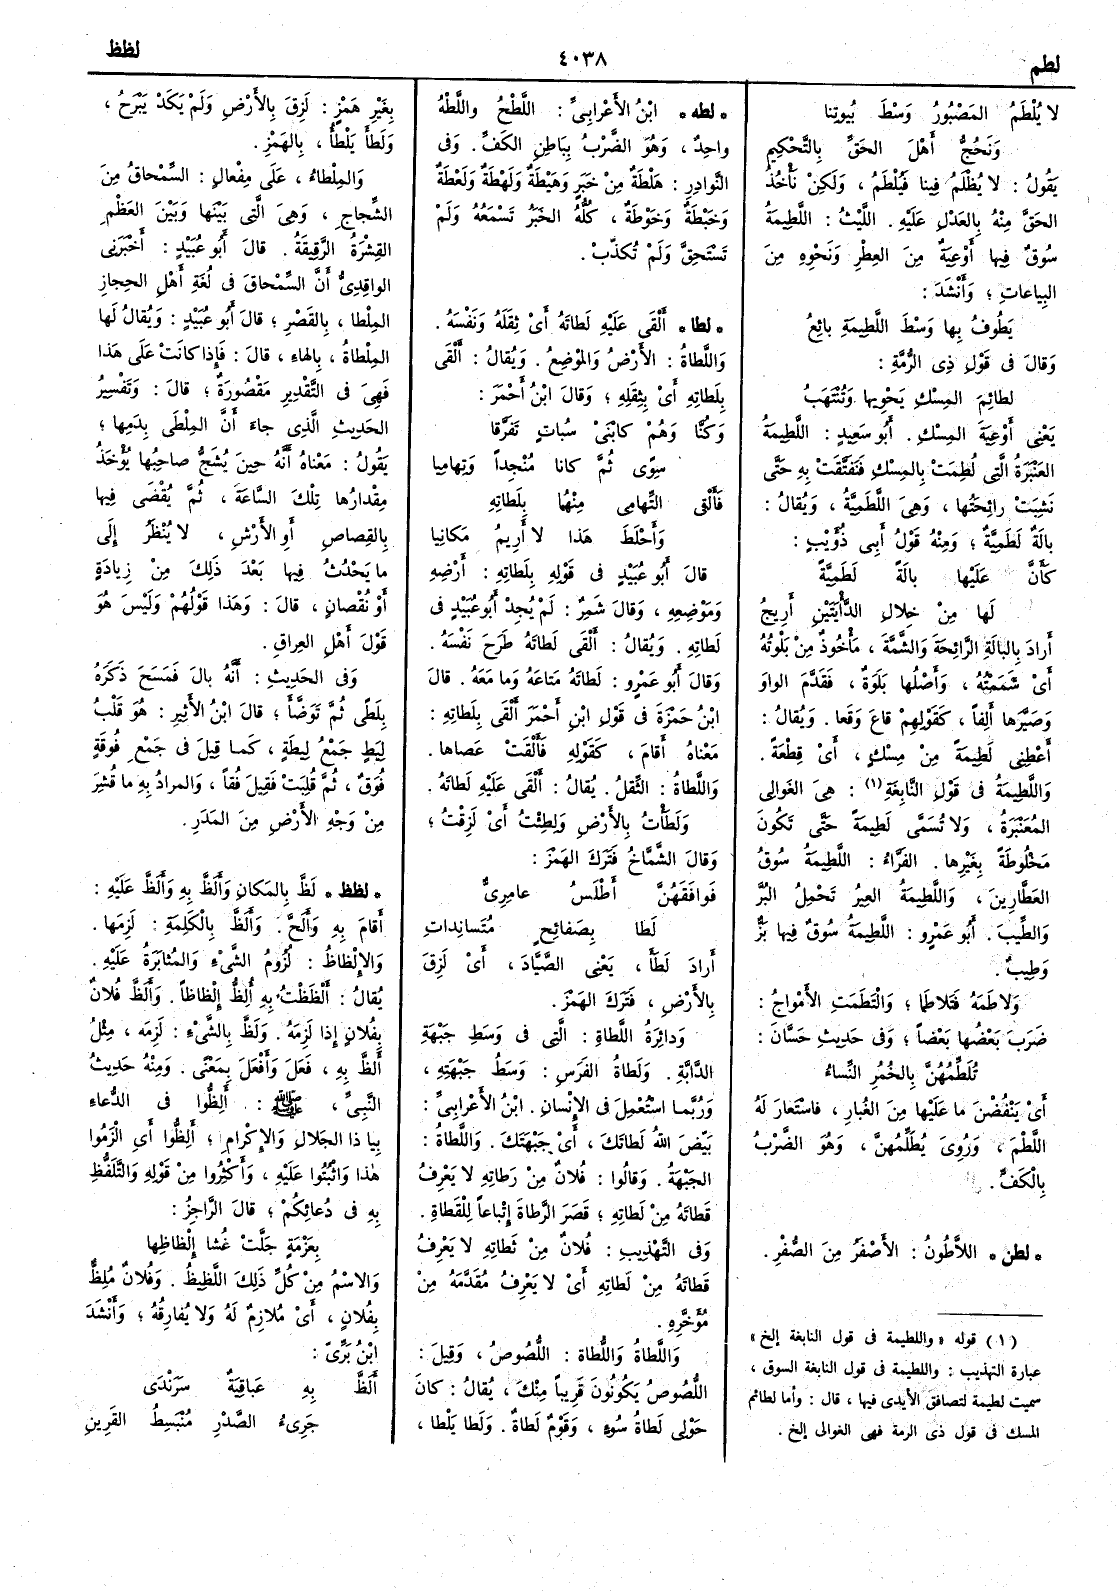 لطم
٤٠٣٨
لظظ
لا يُلْطَمُ المَصْبُورُ وَسْطَ بُيوتِنا
وَنَحُجُّ أَهْلَ الحَقِّ بِالتَّحْكِيمِ
يَقُولُ : لا يُظْلَمُ فِينا فَيُلْطَمُ ، وَلَكِنْ نَأْخُذُ
الحَقَّ مِنْهُ بِالعَدْلِ عَلَيْهِ . اللَّيْثُ : اللَّطِيمَةُ
سُوقٌ فِيها أَوْعِيَةٌ مِنَ العِطْرِ وَنَحْوِهِ مِنَ
البِياعاتِ ؛ وَأَنْشَدَ :
يَطُوفُ بِها وَسْطَ اللَّطِيمَةِ بائِعُ
وَقالَ فى قَوْلِ ذِى الرُّمَّةِ :
لَطائِمَ المِسْكِ يَحْوِيها وَتُنْتَهَبُ
يَعْنِى أَوْعِيَةَ المِسْكِ . أَبُو سَعِيدٍ : اللَّطِيمَةُ
العَنْبَرَةُ الَّتِى لُطِمَتْ بِالمِسْكِ فَتَفَتَّقَتْ بِهِ حَتَّى
نَشِبَتْ رائِحَتُها ، وَهِىَ اللَّطَمِيَّةُ ، وَيُقالُ :
بالَةٌ لَطَمِيَّةٌ ؛ وَمِنْهُ قَوْلُ أَبِى ذُؤَيْبٍ :
كَأَنَّ عَلَيْها بالَةً لَطَمِيَّةً
لَها مِنْ خِلالِ الدَّأْيَتَيْنِ أَرِيجُ
أَرادَ بِالبالَةِ الرَّائِحَةَ وَالشَّمَّةَ ، مَأْخُوذٌ مِنْ بَلَوْتُهُ
أَىْ شَمَمْتُهُ ، وَأَصْلُها بَلَوَةٌ ، فَقَدَّمَ الواوَ
وَصَيَّرَها أَلِفاً ، كَقَوْلِهِمْ قاعَ وَقَعا . وَيُقالُ :
أَعْطِنِى لَطِيمَةً مِنْ مِسْكٍ ، أَىْ قِطْعَةً .
وَاللَّطِيمَةُ فى قَوْلِ النَّابِغَةِ (١) : هِىَ الغَوالِى
المُعَنْبَرَةُ ، وَلا تُسَمَّى لَطِيمَةً حَتَّى تَكُونَ
مَخْلُوطَةً بِغَيْرِها . الفَرَّاءُ : اللَّطِيمَةُ سُوقُ
العَطَّارِينَ ، وَاللَّطِيمَةُ العِيرُ تَحْمِلُ البُرَّ
وَالطِّيبَ . أَبُو عَمْرٍو : اللَّطِيمَةُ سُوقٌ فِيها بَزٌّ
وَطِيبٌ .
وَلاطَمَهُ فَتَلاطَما ؛ وَالْتَطَمَتِ الأَمْواجُ :
ضَرَبَ بَعْضُها بَعْضاً ؛ وَفى حَدِيثِ حَسَّانَ :
تُلَطِّمُهُنَّ بِالخُمُرِ النِّساءُ
أَىْ يَنْفُضْنَ ما عَلَيْها مِنَ الغُبارِ ، فَاسْتَعارَ لَهُ
اللَّطْمَ ، وَرُوِىَ يُطَلِّمُهُنَّ ، وَهُوَ الضَّرْبُ
بِالْكَفِّ .
* لطن * اللاَّطُونُ : الأَصْفَرُ مِنَ الصُّفْرِ .
(١) قوله « واللطيمة فى قول النابغة إلخ »
عبارة التهذيب : واللطيمة فى قول النابغة السوق ،
سميت لطيمة لتصافق الأيدى فيها ، قال : وأما لطائم
المسك فى قول ذى الرمة فهى الغوالى إلخ .
* لطه * ابْنُ الأَعْرابِىِّ : اللَّطْحُ واللَّطْهُ
واحِدٌ ، وَهُوَ الضَّرْبُ بِبَاطِنِ الكَفِّ . وَفى
النَّوادِرِ : هَلْطَةٌ مِنْ خَبَرٍ وَهَيْطَةٌ وَلَهْطَةٌ وَلَعْطَةٌ
وَخَبْطَةٌ وَخَوْطَةٌ ، كُلُّهُ الخَبَرُ تَسْمَعُهُ وَلَمْ
تَسْتَحِقَّ وَلَمْ تُكَذِّبْ .
* لطا * أَلْقَى عَلَيْهِ لَطاتَهُ أَىْ ثِقَلَهُ وَنَفْسَهُ .
وَاللَّطاةُ : الأَرْضُ وَالمَوْضِعُ . وَيُقالُ : أَلْقَى
بِلَطاتِهِ أَىْ بِثِقَلِهِ ؛ وَقالَ ابْنُ أَحْمَرَ :
وَكُنَّا وَهُمْ كابْنَىْ سُباتٍ تَفَرَّقا
سِوًى ثُمَّ كانا مُنْجِداً وَتِهامِيا
فَأَلْقَى التِّهامِى مِنْهُما بِلَطاتِهِ
وَأَحْلَطَ هَذا لا أَرِيمُ مَكانِيا
قالَ أَبُو عُبَيْدٍ فى قَوْلِهِ بِلَطاتِهِ : أَرْضِهِ
وَمَوْضِعِهِ ، وَقالَ شَمِرٌ : لَمْ يُجِدْ أَبُو عُبَيْدٍ فى
لَطاتِهِ . وَيُقالُ : أَلْقَى لَطاتَهُ طَرَحَ نَفْسَهُ .
وَقالَ أَبُو عَمْرٍو : لَطاتَهُ مَتاعَهُ وَما مَعَهُ . قالَ
ابْنُ حَمْزَةَ فى قَوْلِ ابْنِ أَحْمَرَ أَلْقَى بِلَطاتِهِ :
مَعْناهُ أَقامَ ، كَقَوْلِهِ فَأَلْقَتْ عَصاها .
وَاللَّطاةُ : الثِّقَلُ . يُقالُ : أَلْقَى عَلَيْهِ لَطاتَهُ .
وَلَطَأْتُ بِالأَرْضِ وَلَطِئْتُ أَىْ لَزِقْتُ ؛
وَقالَ الشَّمَّاخُ فَتَرَكَ الهَمْزَ :
فَوافَقَهُنَّ أَطْلَسُ عامِرِىٌّ
لَطا بِصَفائِحٍ مُتَسانِداتِ
أَرادَ لَطَأَ ، يَعْنِى الصَّيَّادَ ، أَىْ لَزِقَ
بِالأَرْضِ ، فَتَرَكَ الهَمْزَ .
وَدائِرَةُ اللَّطاةِ : الَّتِى فى وَسَطِ جَبْهَةِ
الدَّابَّةِ . وَلَطاةُ الفَرَسِ : وَسَطُ جَبْهَتِهِ ،
وَرُبَّما اسْتُعْمِلَ فى الإِنْسانِ . ابْنُ الأَعْرابِىِّ :
بَيَّضَ اللهُ لَطاتَكَ ، أَىْ جَبْهَتَكَ . وَاللَّطاةُ :
الجَبْهَةُ . وَقالُوا : فُلانٌ مِنْ رَطاتِهِ لا يَعْرِفُ
قَطاتَهُ مِنْ لَطاتِهِ ؛ قَصَرَ الرَّطاةَ إِتْباعاً لِلْقَطاةِ .
وَفى التَّهْذِيبِ : فُلانٌ مِنْ ثَطاتِهِ لا يَعْرِفُ
قَطاتَهُ مِنْ لَطاتِهِ أَىْ لا يَعْرِفُ مُقَدَّمَهُ مِنْ
مُؤَخَّرِهِ .
وَاللَّطاةُ وَاللُّطاة : اللُّصُوصُ ، وَقِيلَ :
اللُّصُوصُ يَكُونُونَ قَرِيباً مِنْكَ ، يُقالُ : كانَ
حَوْلِى لَطاةُ سُوءٍ ، وَقَوْمٌ لَطاةٌ . وَلَطا يَلْطا ،
بِغَيْرِ هَمْزٍ : لَزِقَ بِالأَرْضِ وَلَمْ يَكَدْ يَبْرَحُ ،
وَلَطَأَ يَلْطَأُ ، بِالهَمْزِ .
وَالمِلْطاءُ ، عَلَى مِفْعالٍ : السِّمْحاقُ مِنَ
الشِّجاجِ ، وَهِىَ الَّتِى بَيْنَها وَبَيْنَ العَظْمِ
القِشْرَةُ الرَّقِيقَةُ . قالَ أَبُو عُبَيْدٍ : أَخْبَرَنِى
الواقِدِىُّ أَنَّ السِّمْحاقَ فى لُغَةِ أَهْلِ الحِجازِ
المِلْطا ، بِالقَصْرِ ؛ قالَ أَبُو عُبَيْدٍ : وَيُقالُ لَها
المِلْطاةُ ، بِالهاءِ ، قالَ : فَإِذا كانَتْ عَلَى هَذا
فَهِىَ فى التَّقْدِيرِ مَقْصُورَةٌ ؛ قالَ : وَتَفْسِيرُ
الحَدِيثِ الَّذِى جاءَ أَنَّ المِلْطَى بِدَمِها ؛
يَقُولُ : مَعْناهُ أَنَّهُ حِينَ يُشَجُّ صاحِبُها يُؤْخَذُ
مِقْدارُها تِلْكَ السَّاعَةَ ، ثُمَّ يُقْضَى فِيها
بِالقِصاصِ أَوِ الأَرْشِ ، لا يُنْظَرُ إِلَى
ما يَحْدُثُ فِيها بَعْدَ ذَلِكَ مِنْ زِيادَةٍ
أَوْ نُقْصانٍ ، قالَ : وَهَذا قَوْلُهُمْ وَلَيْسَ هُوَ
قَوْلَ أَهْلِ العِراقِ .
وَفى الحَدِيثِ : أَنَّهُ بالَ فَمَسَحَ ذَكَرَهُ
بِلِطًى ثُمَّ تَوَضَّأَ ؛ قالَ ابْنُ الأَثِيرِ : هُوَ قَلْبُ
لِيَطٍ جَمْعُ لِيطَةٍ ، كَما قِيلَ فى جَمْعِ فُوقَةٍ
فُوَقٌ ، ثُمَّ قُلِبَتْ فَقِيلَ فُقاً ، وَالمرادُ بِهِ ما قُشِرَ
مِنْ وَجْهِ الأَرْضِ مِنَ المَدَرِ .
* لظظ * لَظَّ بِالمَكانِ وَأَلَظَّ بِهِ وَأَلَظَّ عَلَيْهِ :
أَقامَ بِهِ وَأَلَحَّ . وَأَلَظَّ بِالْكَلِمَةِ : لَزِمَها .
وَالإِلْظاظُ : لُزُومُ الشَّىْءِ وَالمُثابَرَةُ عَلَيْهِ .
يُقالُ : أَلْظَظْتُ بِهِ أُلِظُّ إِلْظاظاً . وَأَلَظَّ فُلانٌ
بِفُلانٍ إِذا لَزِمَهُ . وَلَظَّ بِالشَّىْءِ : لَزِمَه ، مِثْلُ
أَلَظَّ بِهِ ، فَعَلَ وَأَفْعَلَ بِمَعْنًى . وَمِنْهُ حَدِيثُ
النَّبِىِّ ، ﷺ : أَلِظُّوا فى الدُّعاءِ
بِيا ذا الجَلالِ وَالإِكْرامِ ؛ أَلِظُّوا أَىِ الْزَمُوا
هٰذا وَاثْبُتُوا عَلَيْهِ ، وَأَكْثِرُوا مِنْ قَوْلِهِ وَالتَّلَفُّظِ
بِهِ فى دُعائِكُمْ ؛ قالَ الرَّاجِزُ :
بِعَزْمَةٍ جَلَّتْ غُشا إِلْظاظِها
وَالاسْمُ مِنْ كُلِّ ذَلِكَ اللَّظِيظُ . وَفُلانٌ مُلِظٌّ
بِفُلانٍ ، أَىْ مُلازِمٌ لَهُ وَلا يُفارِقُهُ ؛ وَأَنْشَدَ
ابْنُ بَرِّىّ :
أَلَظَّ بِهِ عَباقِيَةٌ سَرَنْدَى
جَرِىءُ الصَّدْرِ مُنْبَسِطُ القَرِينِ